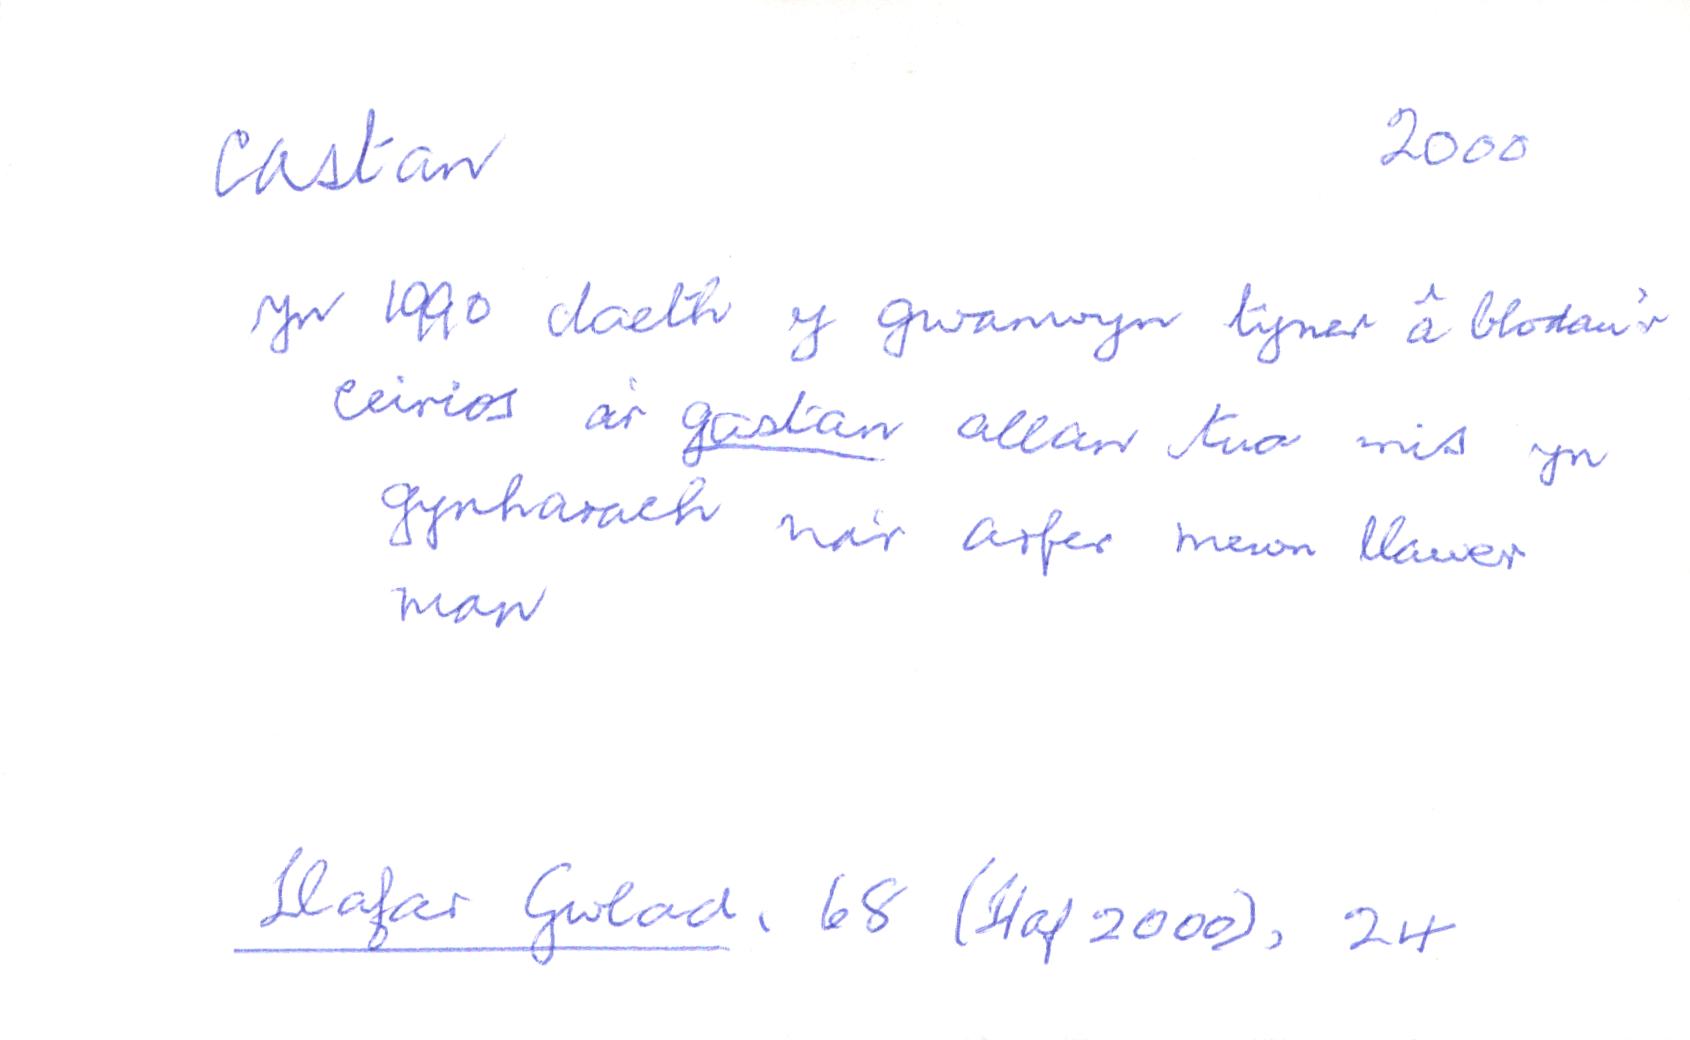 castan 2000
yn 1990 daeth y gwanwyn tyner â blodau'r
ceirios a'r gastan allan tua mis yn
gynharach na'r arfer mewn llawer
man
Llafar Gwlad, 68 (Haf 2000), 24